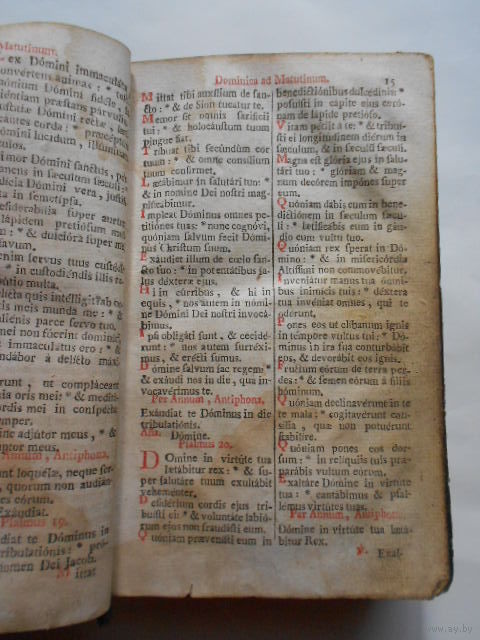 Matutinum.
ex Dómini immaculáta
convértens ánimas : *
mónium Dómini fidéle
piéntiam præstans párvulis
lætificántes corda : * præcéptum
Dómini lúcidum, illúminans
óculos.
imor Dómini sanctus, per
ens in sæculum sæculi :
dícia Dómini vera, justi
ta in semetípsa.
esiderabília super aurum
lápidem pretiósum mul
: * & dulcióra super m
avum.
enim servus tuus custódi
* in custodiéndis illis re
útio multa.
elícta quis intélligit? ab oc
is meis munda me : * &
aliénis parce servo tuo.
mei non fúerint domináti
immaculátus ero : * &
undábor à delícto máxi

erunt, ut compláceant
uia oris mei : * & medi
ordis mei in conspéctu
emper.
ómine adjútor meus , * &
emptor meus.
Annum , Antiphona.
sunt loquélæ, neque ser-
quorum non audián-
ces eórum.
Exáudiat.
Psalmus 19.
diat te Dóminus in
tribulatiónis : * pro-
nomen Dei Jacob.
Mittat
Dominica ad Matutinum. 15
Mittat tibi auxílium de san-
cto : * & de Sion tueátur te.
Memor sit omnis sacrifícii
tui : * & holocáustum tuum
pingue fiat.
Tríbuat tibi secúndùm cor
tuum : * & omne consílium
tuum confírmet.
Lætábimur in salutári tuo : *
& in nómine Dei nostri mag-
nificábimur.
Impleat Dóminus omnes pe-
titiónes tuas : * nunc cognóvi,
quóniam salvum fecit Dómi-
nus Christum suum.
Exáudiet illum de cœlo san-
cto suo : * in potentátibus sa-
lus déxteræ ejus.
Hi in cúrribus, & hi in
equis , * nos autem in nómi-
ne Dómini Dei nostri invocá-
bimus.
Ipsi obligáti sunt , & cecidé-
runt : * nos autem surréxi-
mus, & erécti sumus.
Dómine salvum fac regem : *
& exáudi nos in die, qua in-
vocavérimus te.
Per Annum, Antiphona.
Exáudiat te Dóminus in die
tribulatiónis.
Ant. Dómine.
Psalmus 20.
Dómine in virtúte tua
lætábitur rex : * & su-
per salutáre tuum exultábit
veheménter.
Desidérium cordis ejus tribu-
ísti ei : * & voluntáte labió-
rum ejus non fraudásti eum.
Quóniam prævenísti eum in
benedictiónibus dulcédinis : *
posuísti in cápite ejus coró-
nam de lápide pretióso.
Vitam pétiit à te : * & tribuí-
sti ei longitúdinem diérum in
sæculum, & in sæculú sæculi.
Magna est glória ejus in salu-
tári tuo : * glóriam & mag-
num decórem impónes super
eum.
Quóniam dabis eum in bene-
dictiónem in sæculum sæcu-
li : * lætificábis eum in gáu-
dio cum vultu tuo.
Quóniam rex sperat in Dó-
mino : * & in misericórdia
Altíssimi non commovébitur.
Inveniátur manus tua ómni-
bus inimícis tuis : * déxtera
tua invéniat omnes , qui te
odérunt.
Pones eos ut clíbanum ignis
in témpore vultus tui : * Dó-
minus in ira sua conturbábit
eos, & devorábit eos ignis.
Fructum eórum de terra per-
des : * & semen eórum à fíliis
hóminum.
Quóniam declinavérunt in te
te mala : * cogitavérunt con-
sília , quæ non potuérunt
stabilíre.
Quóniam pones eos dor-
sum : * in relíquiis tuis præ-
parábis vultum eórum.
Exaltáre Dómine in virtúte
tua : * cantábimus & psal-
lémus virtútes tuas.
Per Annum , Antiphona.
Dómine in virtúte tua lætá-
bitur Rex.
℣. Exal-
www.ay.by